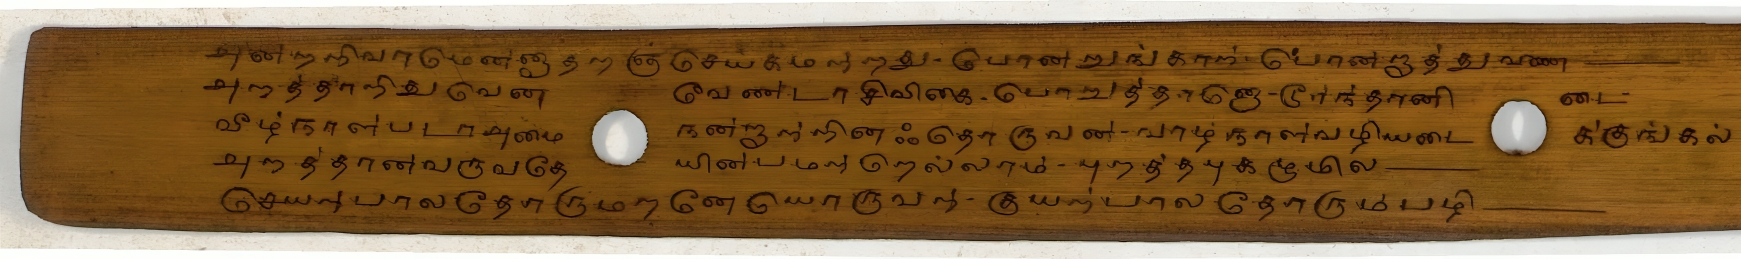 அன்றறிவாமென்னுதறஞ் செய்கமற்றது - பொன்றுங்கால் பொன்றத்துவண
அறத்தாறிதுவென வேண்டா சிவிகை - பொறுத்தானொ - டூர்ந்தானி டை
வீழ்நாள்படாஅமை நன்றாற்றினஃதொருவன் - வாழ்நாள்வழியடை க்குங்கல்
அறத்தான்வருவதே யின்பமற்றெல்லாம் - புறத்தபுகழுமில
செயற்பாலதோருமறனே யொருவற் - குயற்பால தோரும்பழி